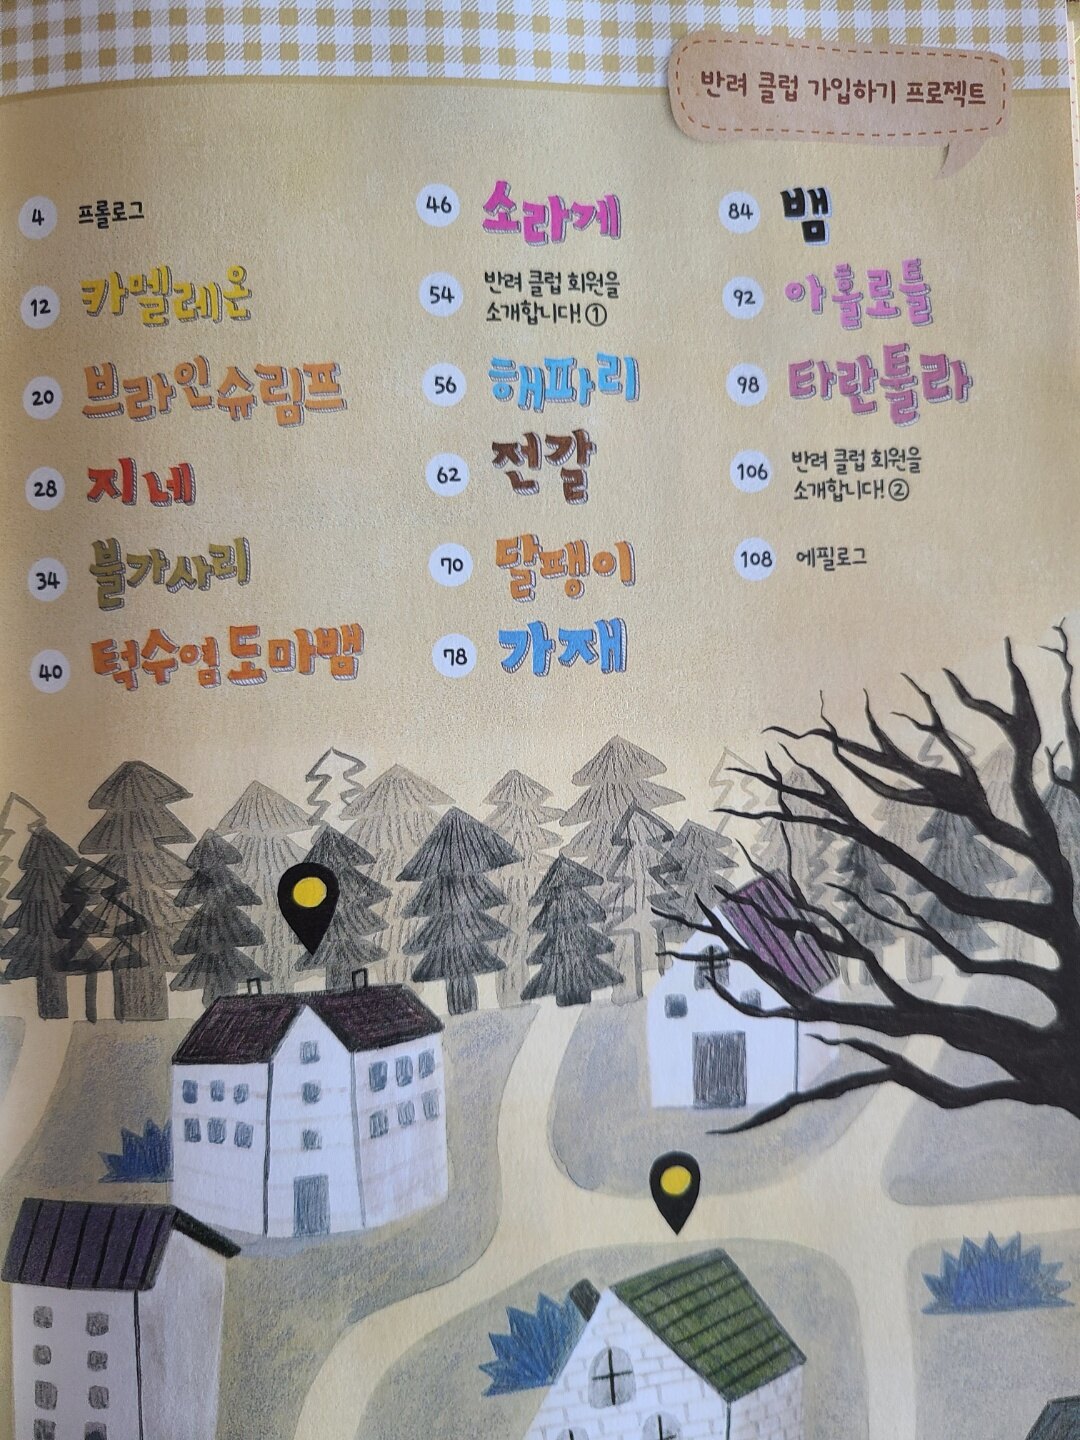 반려 클럽 가입하기 프로젝트
4 프롤로그
12 카멜레온
20 브라인슈림프
28 지네
34 불가사리
40 턱수염도마뱀
46 소라게
54 반려 클럽 회원을
소개합니다! ①
56 해파리
62 전갈
70 달팽이
78 가재
84 뱀
92 아홀로틀
98 타란툴라
106 반려 클럽 회원을
소개합니다! ②
108 에필로그